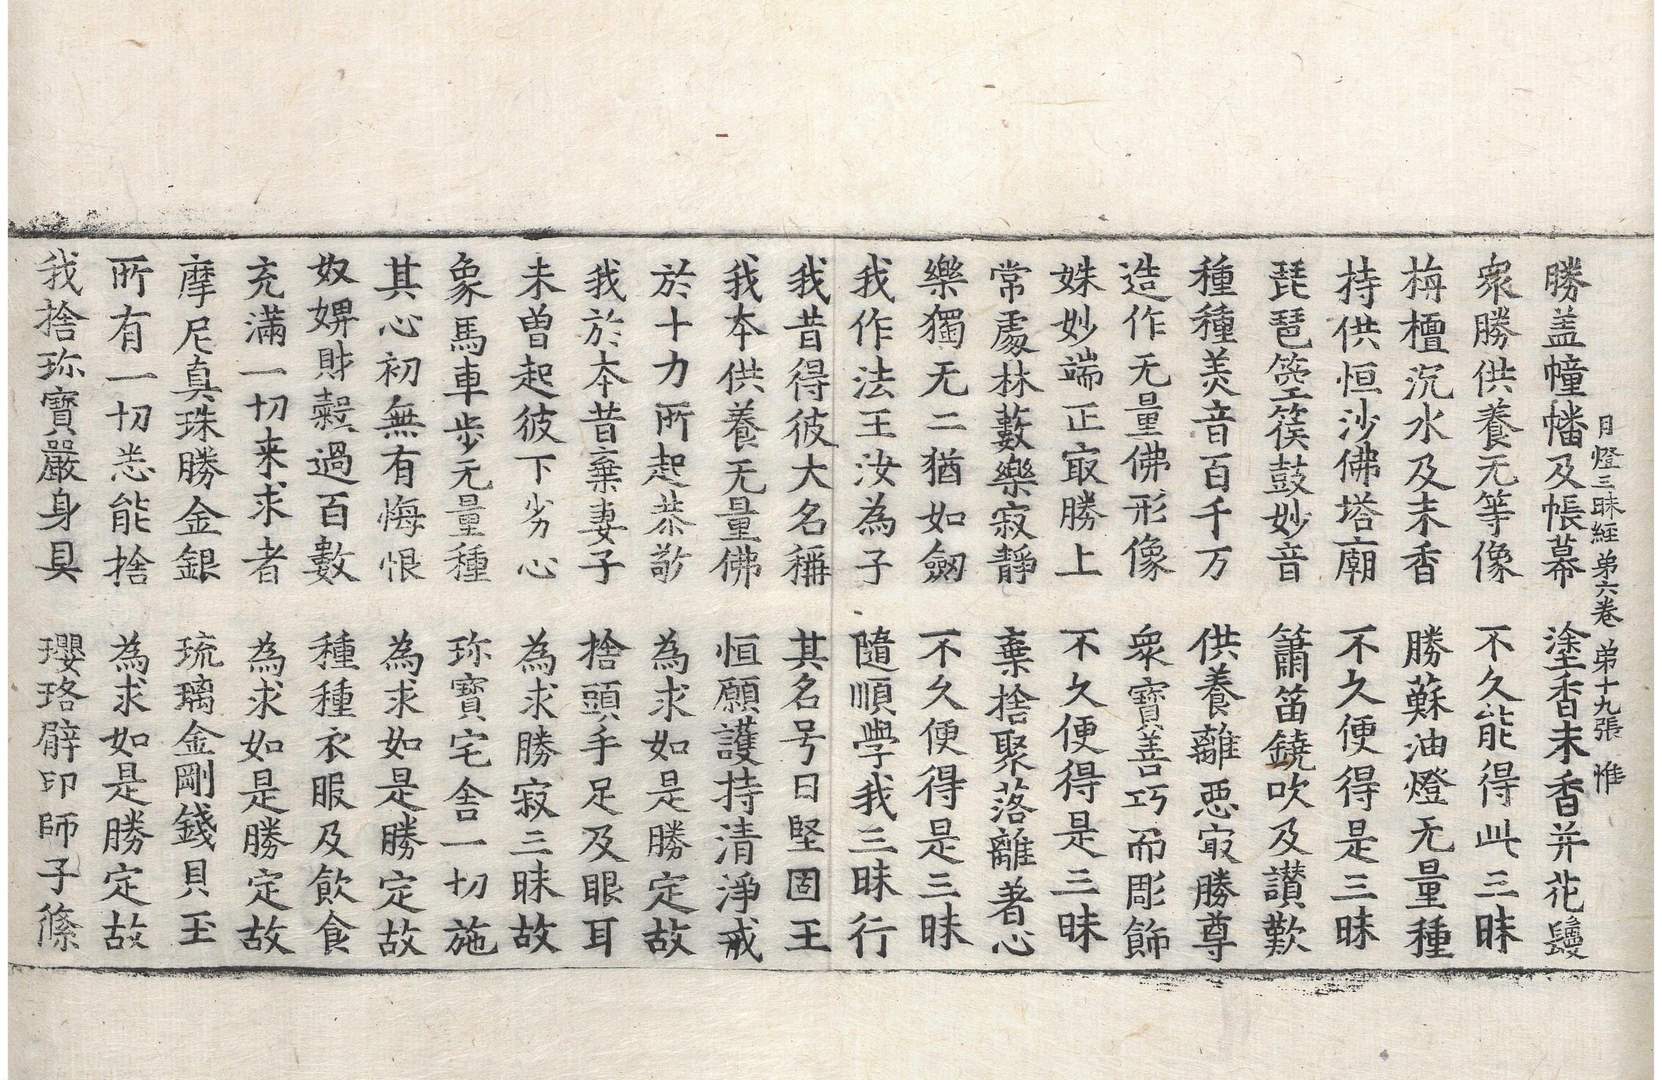 月燈三昧經 第六卷 第十九張 惟
勝盖幢幡及帳幕 塗香末香并花鬘
衆勝供養无等像 不久能得此三昧
栴檀沉水及末香 勝蘇油燈无量種
持供恒沙佛塔廟 不久便得是三昧
琵琶箜篌鼓妙音 簫笛鐃吹及讃歎
種種美音百千万 供養離惡㝡勝尊
造作无量佛形像 衆寶善巧而彫飾
姝妙端正㝡勝上 不久便得是三昧
常處林藪樂寂靜 棄捨聚落離著心
樂獨无二猶如劒 不久便得是三昧
我作法王汝為子 隨順學我三昧行
我昔得彼大名稱 其名号曰堅固王
我本供養无量佛 恒願護持清淨戒
於十力所起恭敬 為求如是勝定故
我於本昔棄妻子 捨頭手足及眼耳
未曽起彼下劣心 為求勝寂三昧故
象馬車步无量種 珎寶宅舎一切施
其心初無有悔恨 為求如是勝定故
奴婢財穀過百數 種種衣服及飲食
充滿一切来求者 為求如是勝定故
摩尼真珠勝金銀 琉璃金剛錢貝玉
所有一切悉能捨 為求如是勝定故
我捨珎寶嚴身具 瓔珞臂印師子絛